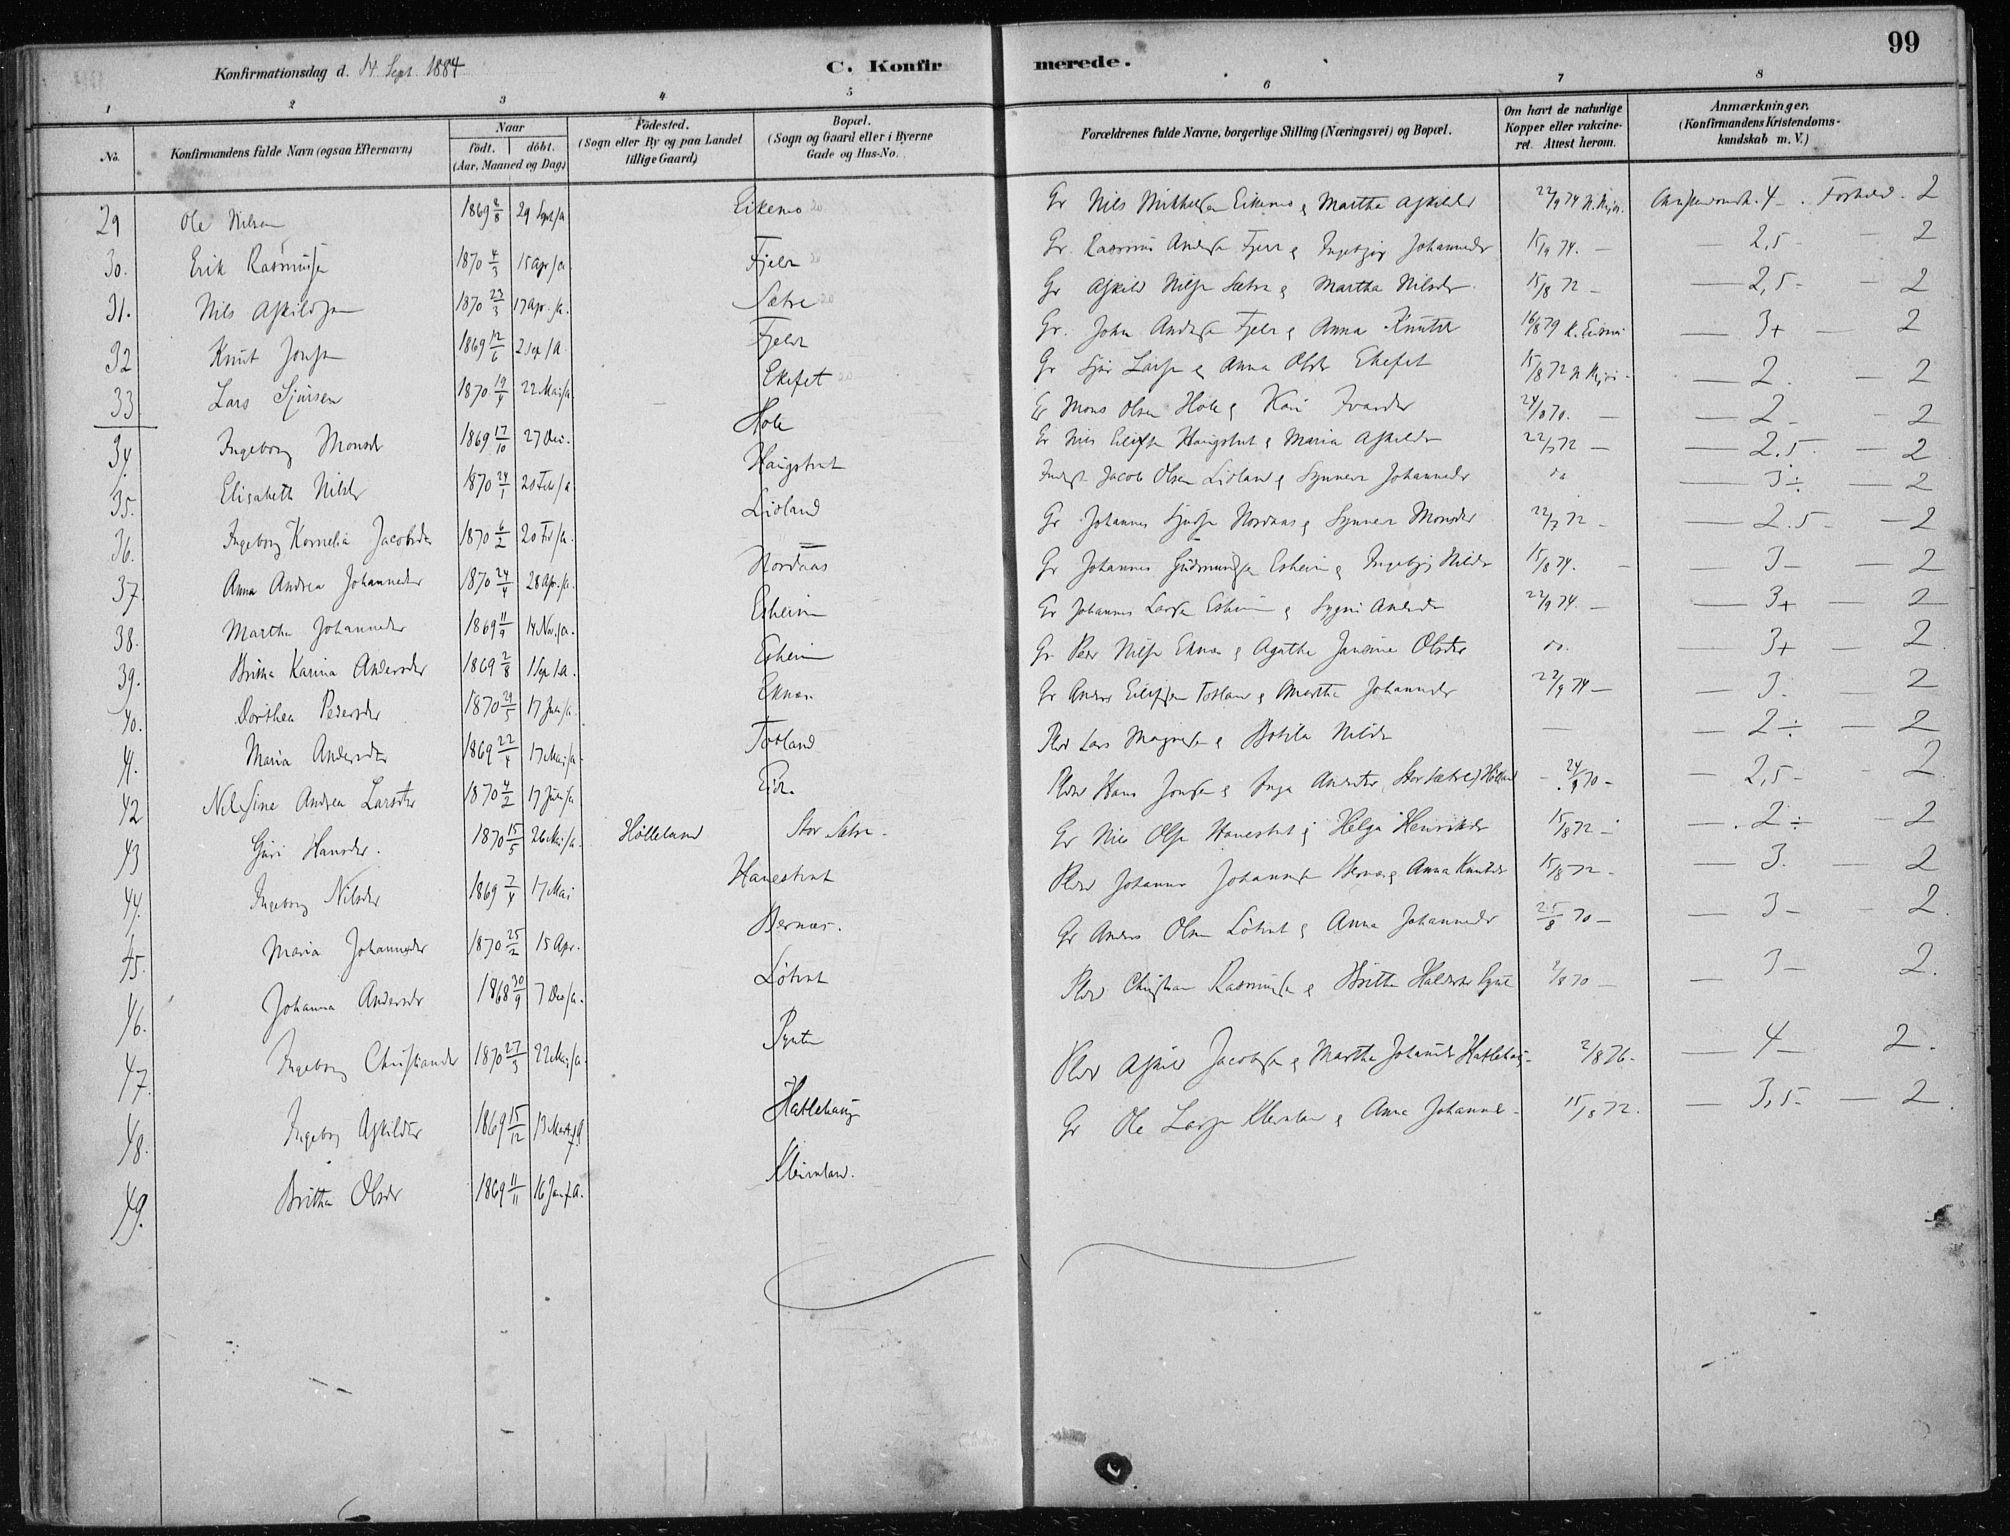 99
Konfirmationsdag d. 14. Sept. 1884
C. Konfirmerede.
1 2 3 4 5 6 7 8
No.
Konfirmandens fulde Navn (ogsaa Efternavn)
Naar
födt. döbt.
(Aar, Maaned og Dag)
Födested.
(Sogn eller By og paa Landet
tillige Gaard)
Bopæl.
(Sogn og Gaard eller i Byerne
Gade og Hus-No.
Forældrenes fulde Navne, borgerlige Stilling (Næringsvei) og Bopæl.
Om havt de naturlige
Kopper eller vakcine-
ret. Attest herom.
Anmærkninger.
(Konfirmandens Kristendoms-
kundskab m. V.)
29 Ole Nilsen 1869 2/8 29 Sept/a Eikemo Gr Nils Mikkelsen Eikemo & Martha Askildsdr 22/9 74 4 Forhold 2
30. Erik Rasmussen 1870 4/3 15 Apr/a Fjeld Gr. Rasmus Anders Fjeld & Ingebjør Johannesdr 15/9 74. — 2,5 — 2
31. Nils Askildsen 1870 23/3 17 Apr./a. Sætre Gr Askild Nilss Sætre & Martha Nilsdr 15/8 72 — 2,5 — 2
32 Knut Jonsen 1869 12/6 2 Sep/a Fjeld Gr. John Anders Fjeld & Anna Knutsdr 16/8 79 — 3+ — 2
33 Lars Sjursen 1870 19/4 22 Mai/a Ekefet Gr Sjur Larss & Anna Olsdr Ekefet 15/8 72 — 2 — 2
34. Ingeborg Monsdr 1869 17/10 27 Dec. Hole Gr Mons Olsen Hole & Kari Ivarsdr 24/8 70. — 2 — 2
35. Elisabeth Nilsdr 1870 24/1 20 Feb/a Haugstvet Gr Nils Haugstvet & Maria Askildsdr 22/7 72 — 2.5 — 2
36. Ingeborg Kornelia Jacobsdr 1870 6/2 20 Feb/a. Lidland Jacob Olsen Lidland & Synneva Johannesdr do — 3 ÷ — 2
37. Anna Andrea Johannesdr 1870 24/4 28 Apr./a. Nordaas Gr Johannes Nordaas & Synneva Monsdr 22/7 72 — 2.5 — 2
38. Martha Johannesdr 1869 11/9 14 Nov./a. Esheim Gr Johannes Gudmunds Esheim & Ingebjør Nilsdr 15/8 74. — 3 — 2
39. Britha Karina Andersdr 1869 2/8 1 Sep/a. Esheim Gr Johannes Larss Esheim & Sygni Andersdr 22/9 74. — 3+ — 2
40. Dorthea Pedersdr 1870 29/5 17 Juli/a Eknæs Gr Peder Nilss Eknæs & Agatha Jansine Olsdtr do. — 3+ — 2
41. Maria Andersdtr 1869 22/4 17 Mai/a Totland Gr Anders Totland & Martha Johannesdr 22/9 74 — 3. 2
42 Nilsine Andrea Larsdtr 1870 4/2 17 Juli/a Eide Lars Magness & Botila Nilsdr — 2 ÷ — 2
43 Guri Hansdr. 1870 15/5 26 Mai/a. Hølleland Stor Sætre. Hans Jonsen & Inga Andersdtr, Stor Sætre 24/8 70 — 2,5 — 2
44. Ingeborg Nilsdr 1869 7/4 17 Mai Hanestvet Gr Nils Olss Hanestvet & Helga Henriksdr 15/8 72 — 2 ÷ — 2
45. Maria Johannesdr 1870 25/2 15 Apr. Bernæs. Johannes Johanness Bernæs & Anna Knutsdr 15/8 72 — 3. — 2
46. Johanna Andersdr 1868 30/9 7 Dec/a. Løtvet Gr Anders Olsen Løtvet & Anna Johannesdr 25/8 70 — 3 — 2.
47. Ingeborg Christiansdr 1870 27/3 22 Mai/a. Christian Rasmuss & Britha Haldorsdr 2/8 70 — 3 — 2.
48. Ingeborg Askildsdr 1869 15/12 13 Marts Hatlehaug Askild Jacobss & Martha Johannesdr Hatlehaug 2/8 76. — 4 — 2.
49. Britha Olsdr 1869 11/11 16 Jan f.A. Kleiveland. Gr Ole Larss Kleiveland & Anna Johannes 15/8 72. — 3,5 — 2.